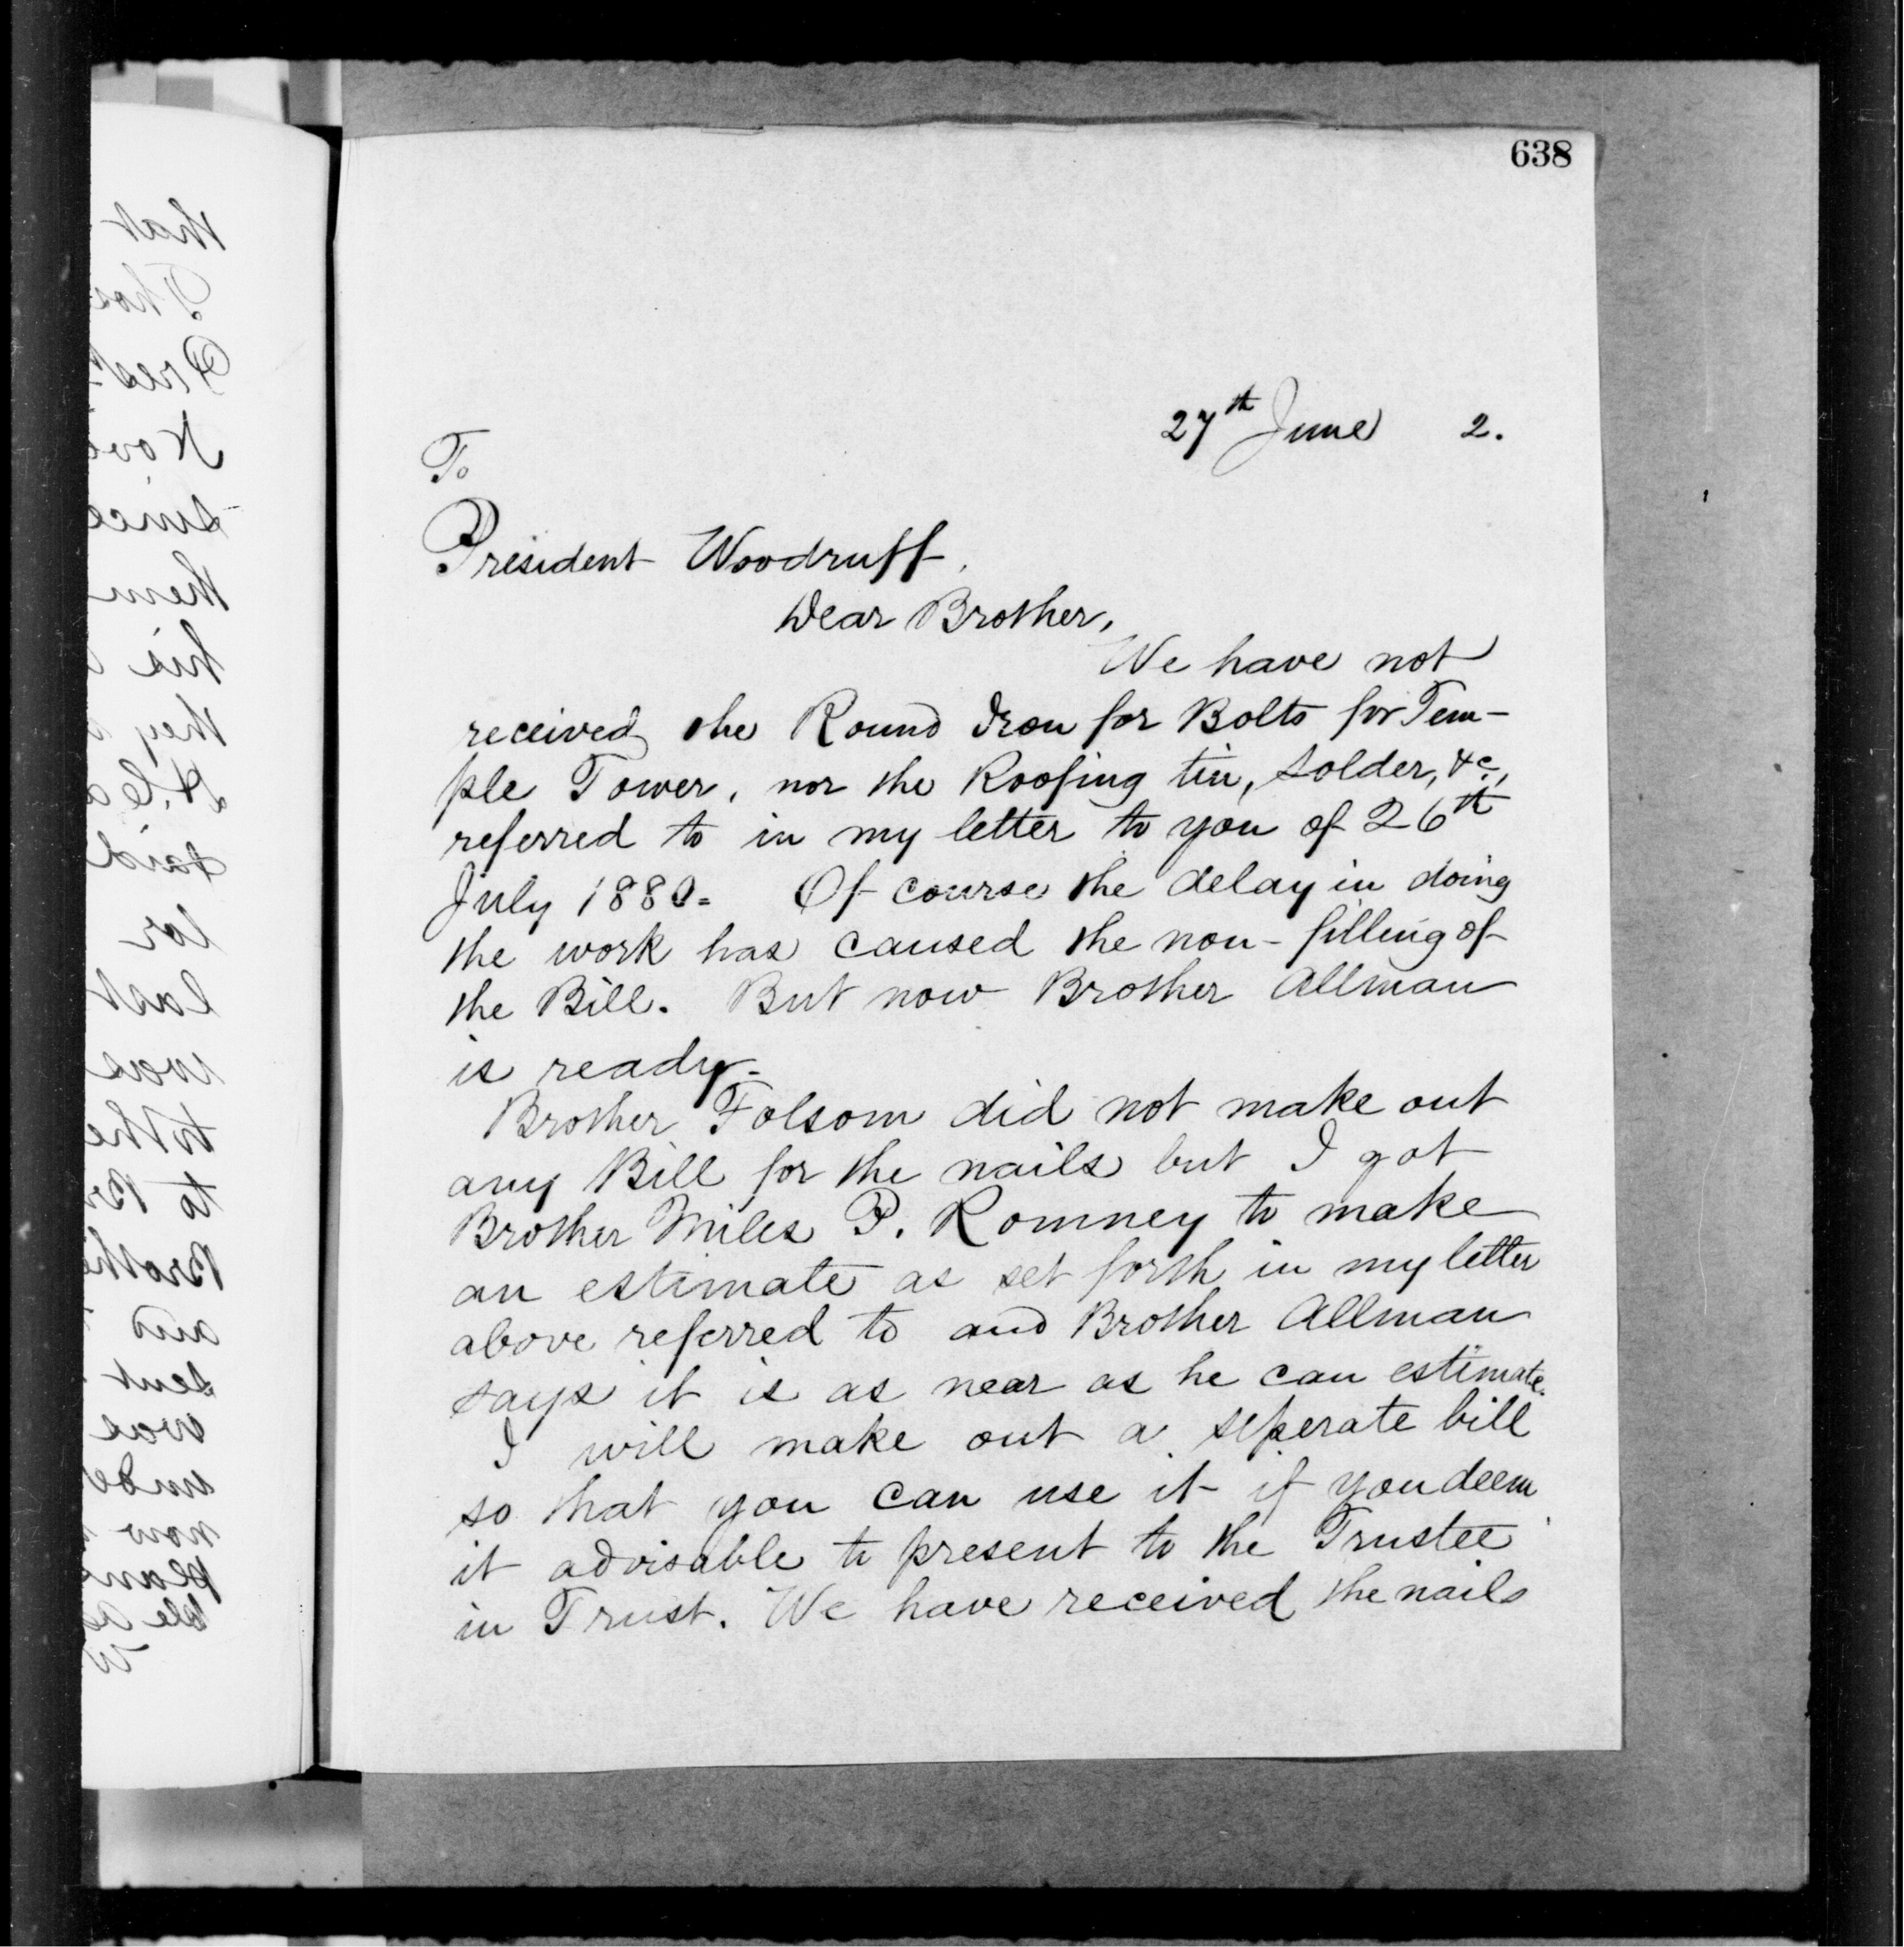 638
27th June 2.
To
President Woodruff.
Dear Brother,
We have not
received the Round Iron for Bolts for Tem-
ple Tower, nor the Roofing tin, solder, &c.,
referred to in my letter to you of 26th
July 1880. Of course the delay in doing
the work has caused the non-filling of
the Bill. But now Brother Allman
is ready.
Brother Folsom did not make out
any Bill for the nails but I got
Brother Miles P. Romney to make
an estimate as set forth in my letter
above referred to and Brother Allman
says it is as near as he can estimate.
I will make out a seperate bill
so that you can use it if you deem
it advisable to present to the Trustee
in Trust. We have received the nails